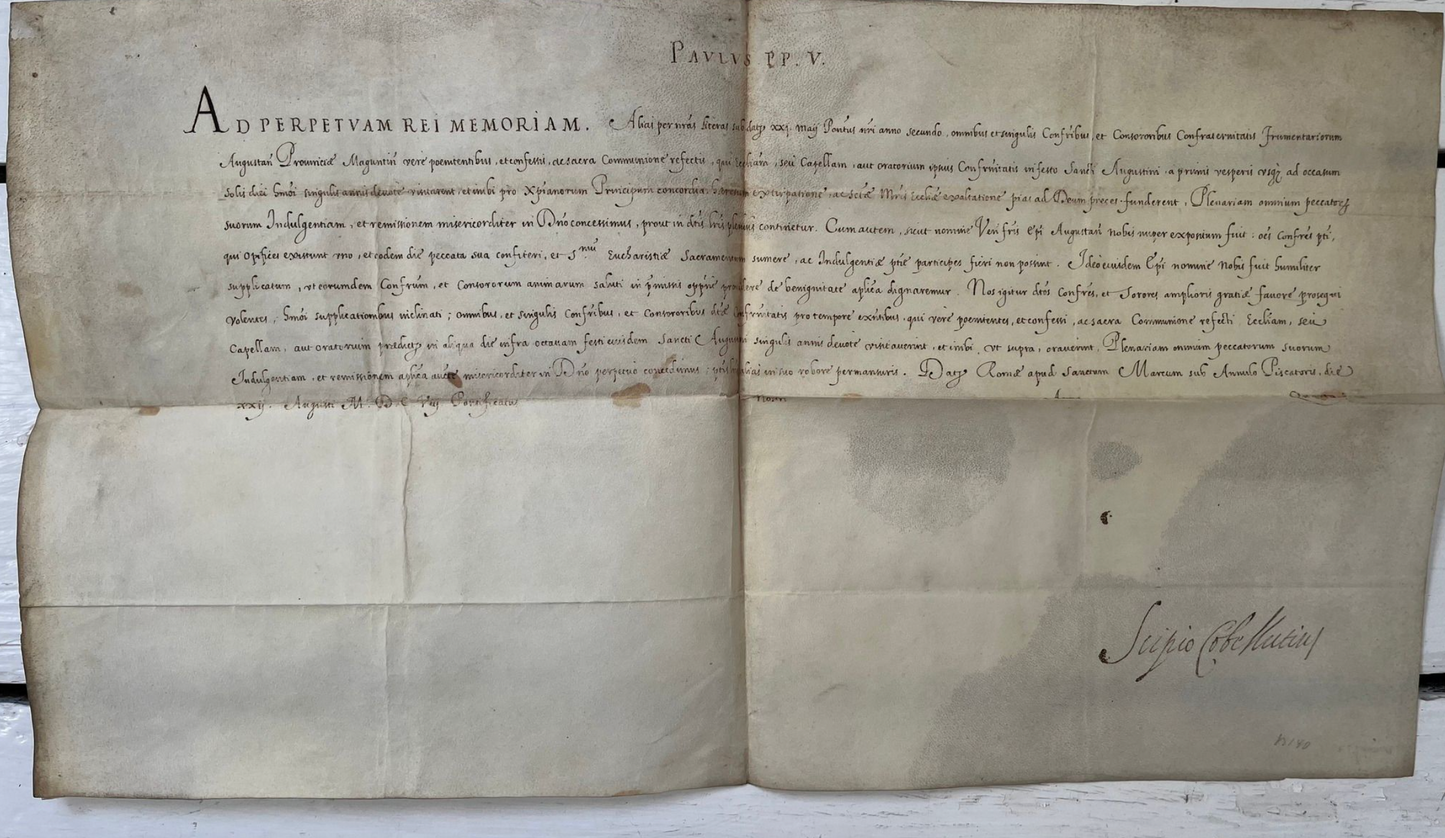 PAVLVS PP. V.
AD PERPETVAM REI MEMORIAM. Alias per nras literas sub datę xxj. maij Pontus nri anno secundo, omnibus et singulis Confribus, et Consororibus Confraternitatis frumentariorum
Augustań Prouinciæ Maguntiń vere poenitentibus, et confessis, ac sacra Communione refectis, qui Eccliam, seu Capellam, aut oratorium ipsius Confrnitatis in festo Sancti Augustini, a primis vesperis vsqȝ ad occasum
solis diei hmoi singulis annis deuote visitarent, et inibi pro Xpianorum Principum concordia, extirpatione, ac sctæ Mris Eccliæ exaltatione pias ad Deum preces funderent, Plenariam omnium peccatorȝ
suorum Indulgentiam, et remissionem misericorditer in Dño concessimus, prout in dtis lris plenius continetur. Cum autem, sicut nomine Veń fris Epi Augustań nobis nuper expositum fuit: oēs Confres pti,
qui Opifices existunt vno, et eodem die peccata sua confiteri, et Smū Eucharistiæ Sacramentum sumere, ac Indulgentiæ ptiæ participes fieri non possint. Ideo eiusdem Epi nomine Nobis fuit humiliter
supplicatum, vt eorumdem Confrum, et Consororum animarum saluti in pmissis opprie prouidere de benignitate aplica dignaremur. Nos igitur dtos Confres, et Sorores amplioris gratiæ fauore prosequi
volentes, hmoi supplicationibus inclinati; omnibus, et singulis Confribus, et Consororibus dictæ Confrnitatis pro tempore exntibus, qui vere poenitentes, et confessi, ac sacra Communione refecti Eccliam, seu
Capellam, aut oratorium prædictȝ in aliqua die infra octauam festi eiusdem Sancti Augustini singulis annis deuote visitauerint, et inibi, vt supra, orauerint, Plenariam omnium peccatorum suorum
Indulgentiam, et remissionem aplica aucte misericorditer in Dño perpetuo concedimus; ptis in suo robore permansuris. Datȝ Romæ apud Sanctum Marcum sub Annulo Piscatoris, die
xxij. Augusti M. D. C VIIJ Pontificatus Nostri
Scipio Cobellutius